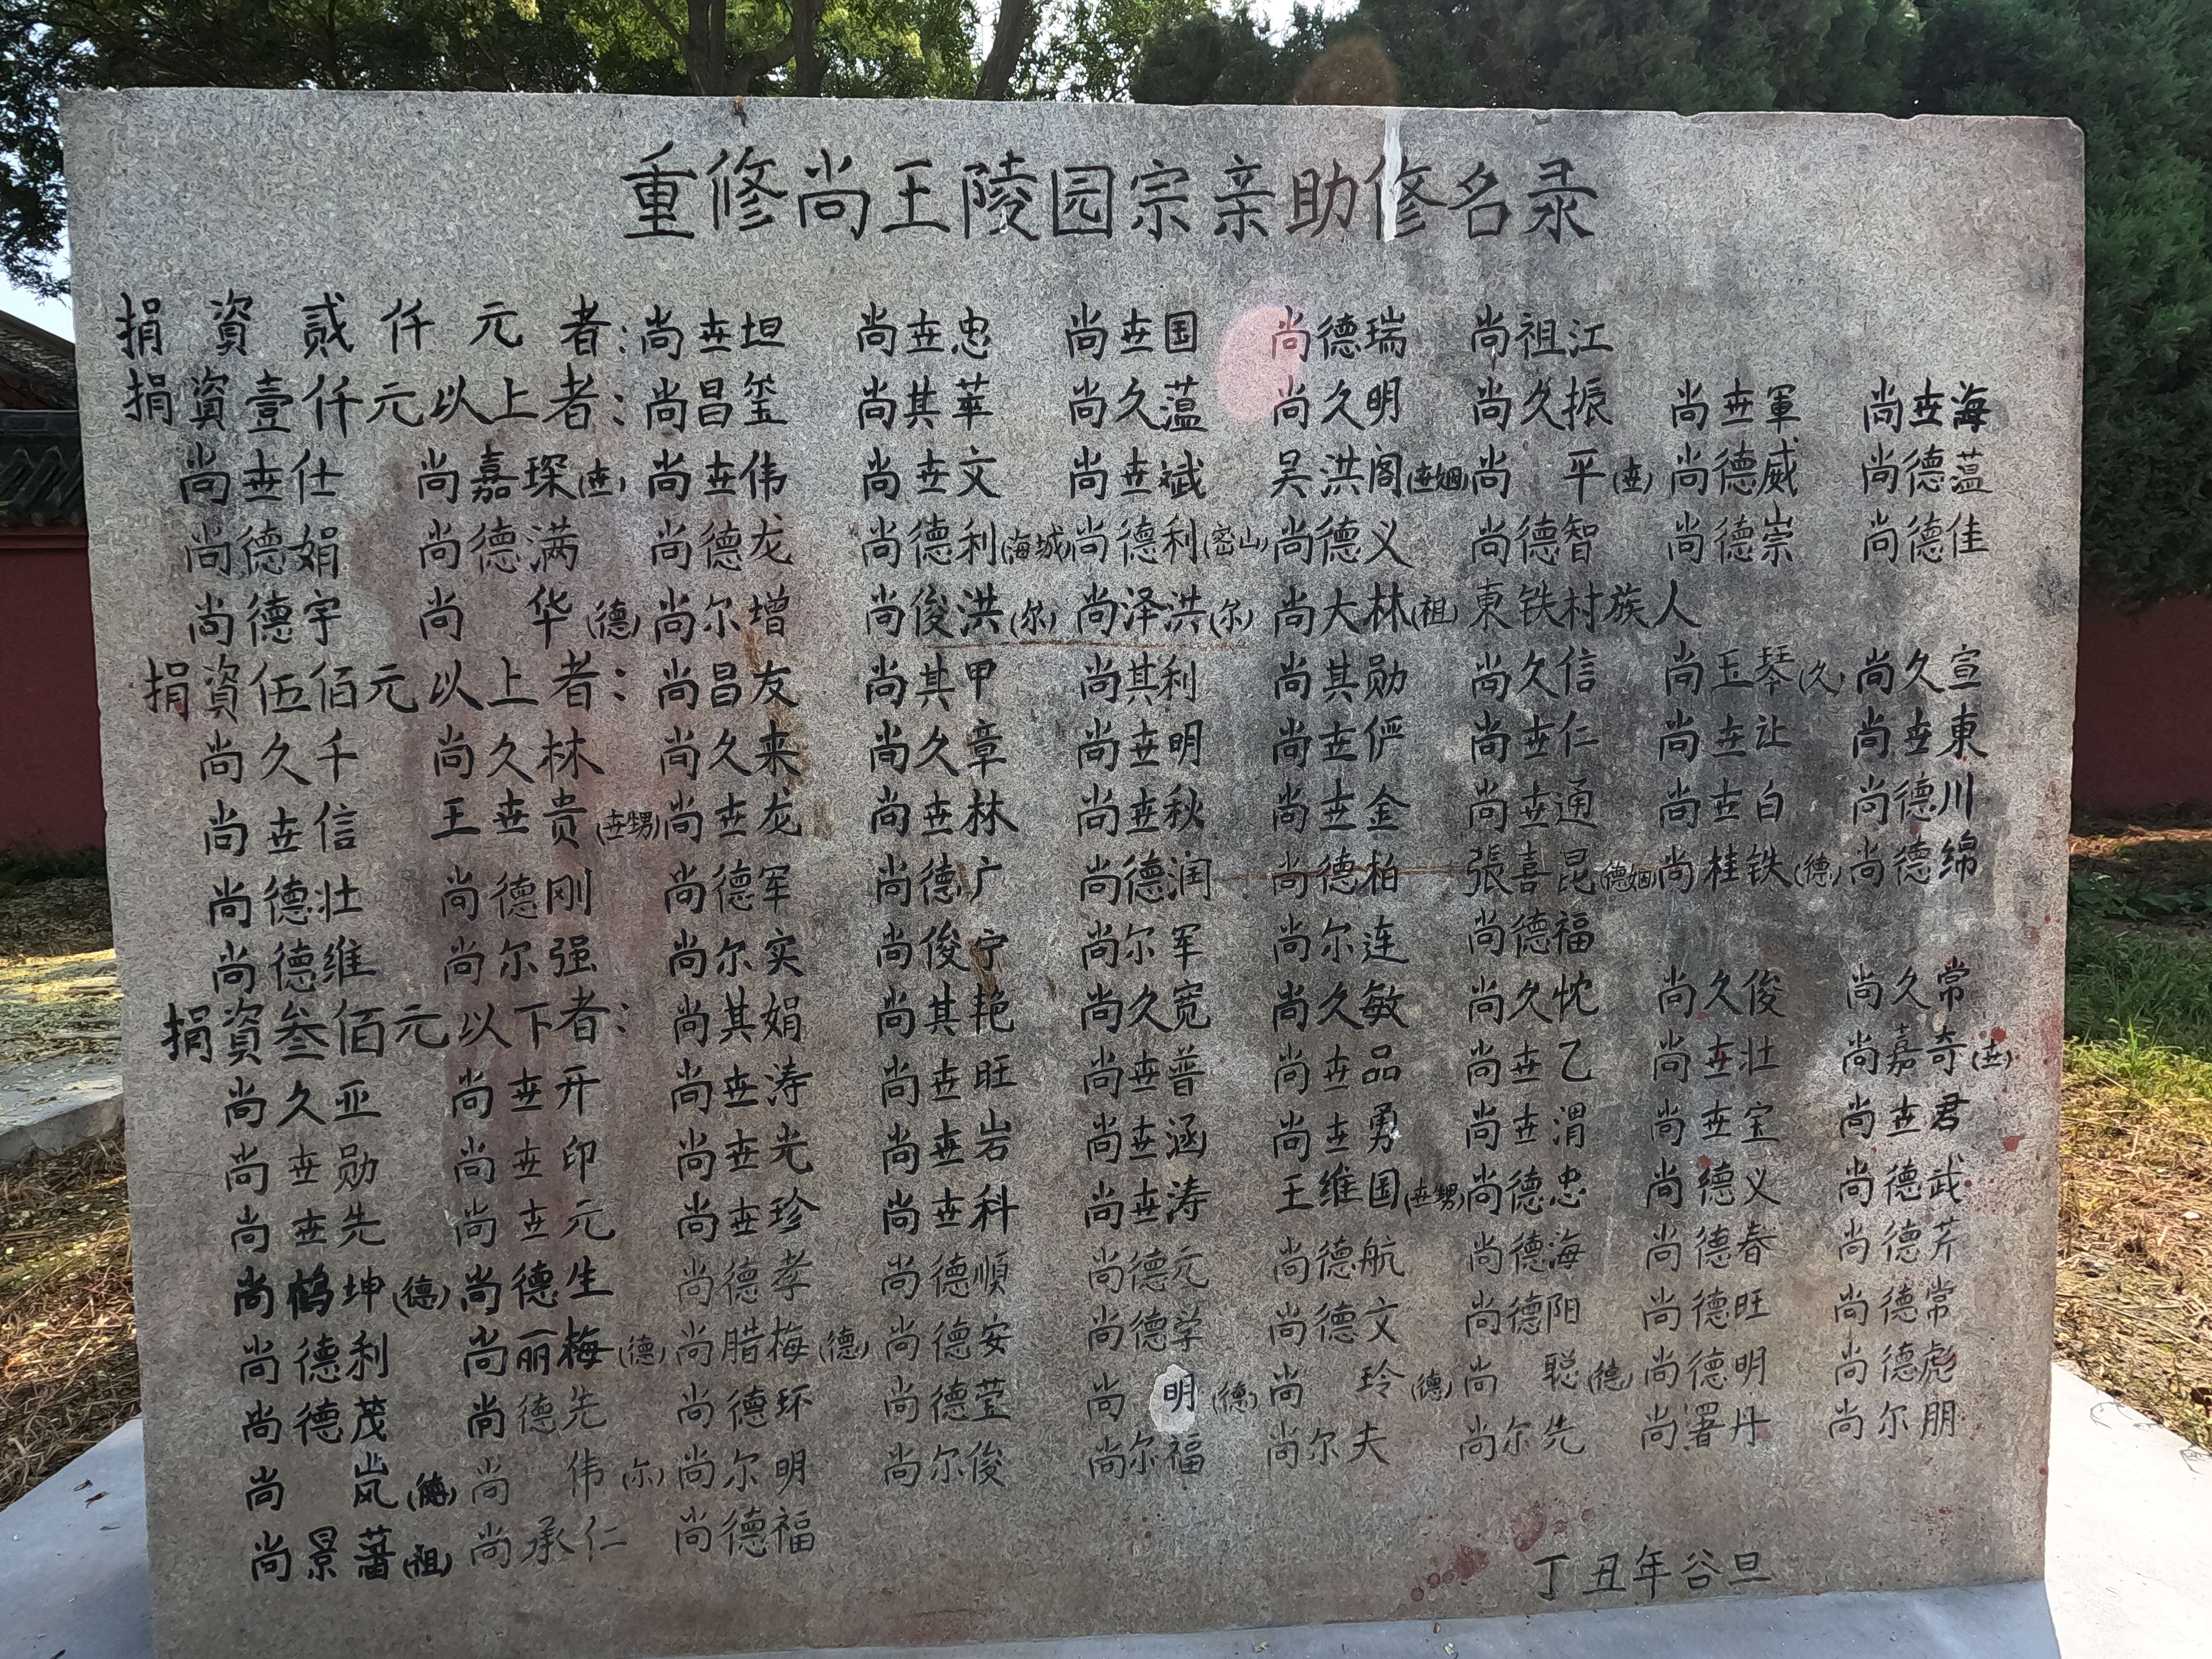 重修尚王陵园宗亲助修名录
捐资贰仟元者：尚世坦 尚世忠 尚世国 尚德瑞 尚祖江
捐资壹仟元以上者：尚昌玺 尚其苹 尚久蕰 尚久明 尚久振 尚世軍 尚世海
尚世仕 尚嘉琛(世) 尚世伟 尚世文 尚世斌 吴洪阁(世姻) 尚平(世) 尚德威 尚德蕰
尚德娟 尚德满 尚德龙 尚德利(海城) 尚德利(密山) 尚德义 尚德智 尚德崇 尚德佳
尚德宇 尚华(德) 尚尔增 尚俊洪(尔) 尚泽洪(尔) 尚大林(祖) 東铁村族人
捐资伍佰元以上者：尚昌友 尚其甲 尚其利 尚其勋 尚久信 尚玉琴(久) 尚久宣
尚久千 尚久林 尚久来 尚久章 尚世明 尚世俨 尚世仁 尚世让 尚世東
尚世信 王世贵(世甥) 尚世龙 尚世林 尚世秋 尚世金 尚世通 尚世白 尚德川
尚德壮 尚德刚 尚德军 尚德广 尚德润 尚德柏 張喜昆(德姻) 尚桂铁(德) 尚德绵
尚德维 尚尔强 尚尔实 尚俊宁 尚尔军 尚尔连 尚德福
捐资叁佰元以下者：尚其娟 尚其艳 尚久宽 尚久敏 尚久忱 尚久俊 尚久常
尚久亚 尚世开 尚世涛 尚世旺 尚世普 尚世品 尚世乙 尚世壮 尚嘉奇(世)
尚世勋 尚世印 尚世光 尚世岩 尚世涵 尚世勇 尚世渭 尚世宝 尚世君
尚世先 尚世元 尚世珍 尚世科 尚世涛 王维国(世甥) 尚德忠 尚德义 尚德武
尚鹤坤(德) 尚德生 尚德孝 尚德顺 尚德元 尚德航 尚德海 尚德春 尚德芹
尚德利 尚丽梅(德) 尚腊梅(德) 尚德安 尚德学 尚德文 尚德阳 尚德旺 尚德常
尚德茂 尚德先 尚德环 尚德莹 尚明(德) 尚玲(德) 尚聪(德) 尚德明 尚德彪
尚岚(德) 尚伟(尔) 尚尔明 尚尔俊 尚尔福 尚尔夫 尚尔先 尚署丹 尚尔朋
尚景蕃(祖) 尚承仁 尚德福
丁丑年谷旦